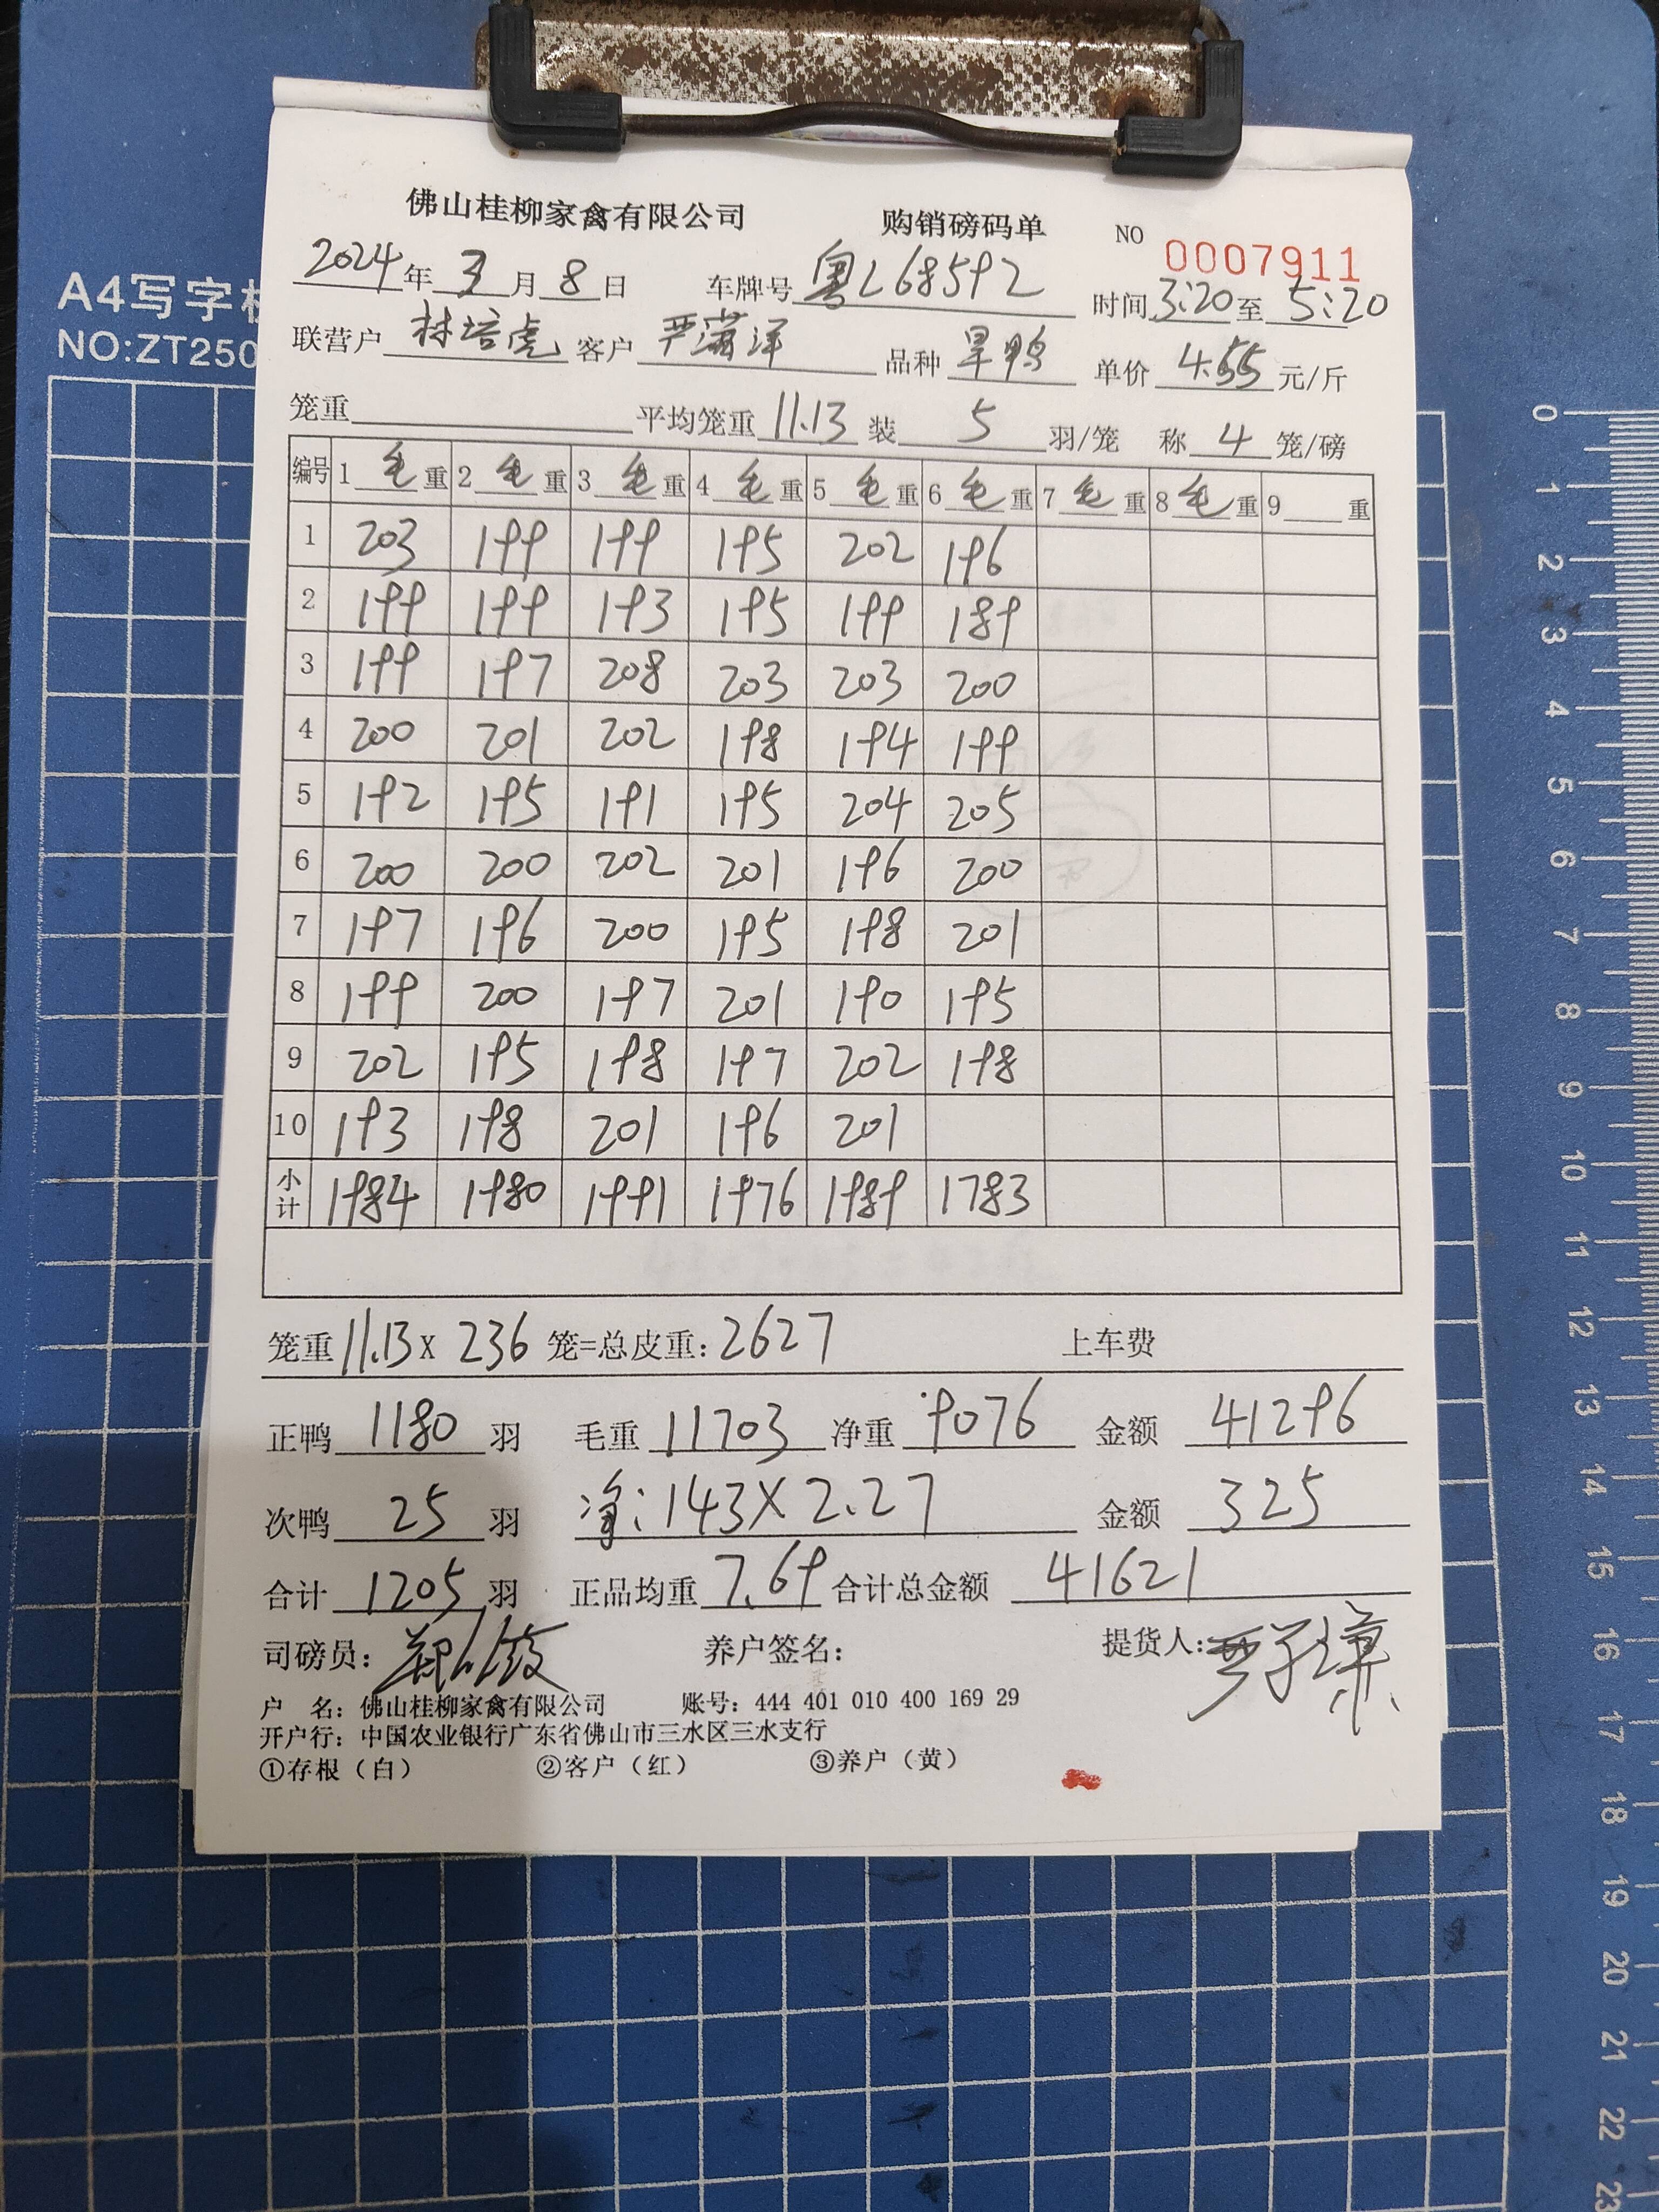 佛山桂柳家禽有限公司 购销磅码单 NO 0007911
2024年3月8日 车牌号 粤L68592 时间 3:20至 5:20
A4写字板
NO:ZT250
联营户 林培虎 客户 严潇洋 品种 旱鸭 单价 4.55 元/斤
笼重 平均笼重 11.13 装 5 羽/笼 称 4 笼/磅
编号 1 毛重 2 毛重 3 毛重 4 毛重 5 毛重 6 毛重 7 毛重 8 毛重 9 重
1 203 199 199 195 202 196
2 199 199 193 195 199 189
3 199 197 208 203 203 200
4 200 201 202 198 194 199
5 192 195 191 195 204 205
6 200 200 202 201 196 200
7 197 196 200 195 198 201
8 199 200 197 201 190 195
9 202 195 198 197 202 198
10 193 198 201 196 201
小计 1984 1980 1991 1976 1989 1783
笼重 11.13 x 236 笼=总皮重: 2627 上车费
正鸭 1180 羽 毛重 11703 净重 9076 金额 41296
次鸭 25 羽 净: 143 X 2.27 金额 325
合计 1205 羽 正品均重 7.69 合计总金额 41621
司磅员: 养户签名: 提货人:
户 名: 佛山桂柳家禽有限公司 账号: 444 401 010 400 169 29
开户行: 中国农业银行广东省佛山市三水区三水支行
①存根（白） ②客户（红） ③养户（黄）
0
1
2
3
4
5
6
7
8
9
10
11
12
13
14
15
16
17
18
19
20
21
22
23